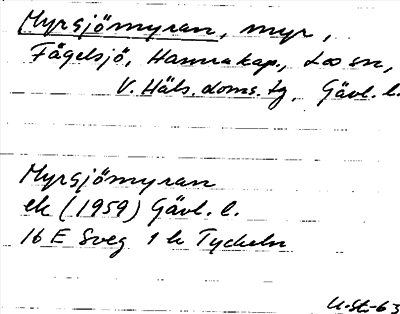 Myrsjömyran, myr,
Fågelsjö, Hamra kap., Loos sn,
V. Häls. doms. tg, Gävl. l.
Myrsjömyran
ek (1959) Gävl. l.
16 E Sveg 1 h Tyckeln
U-St-63